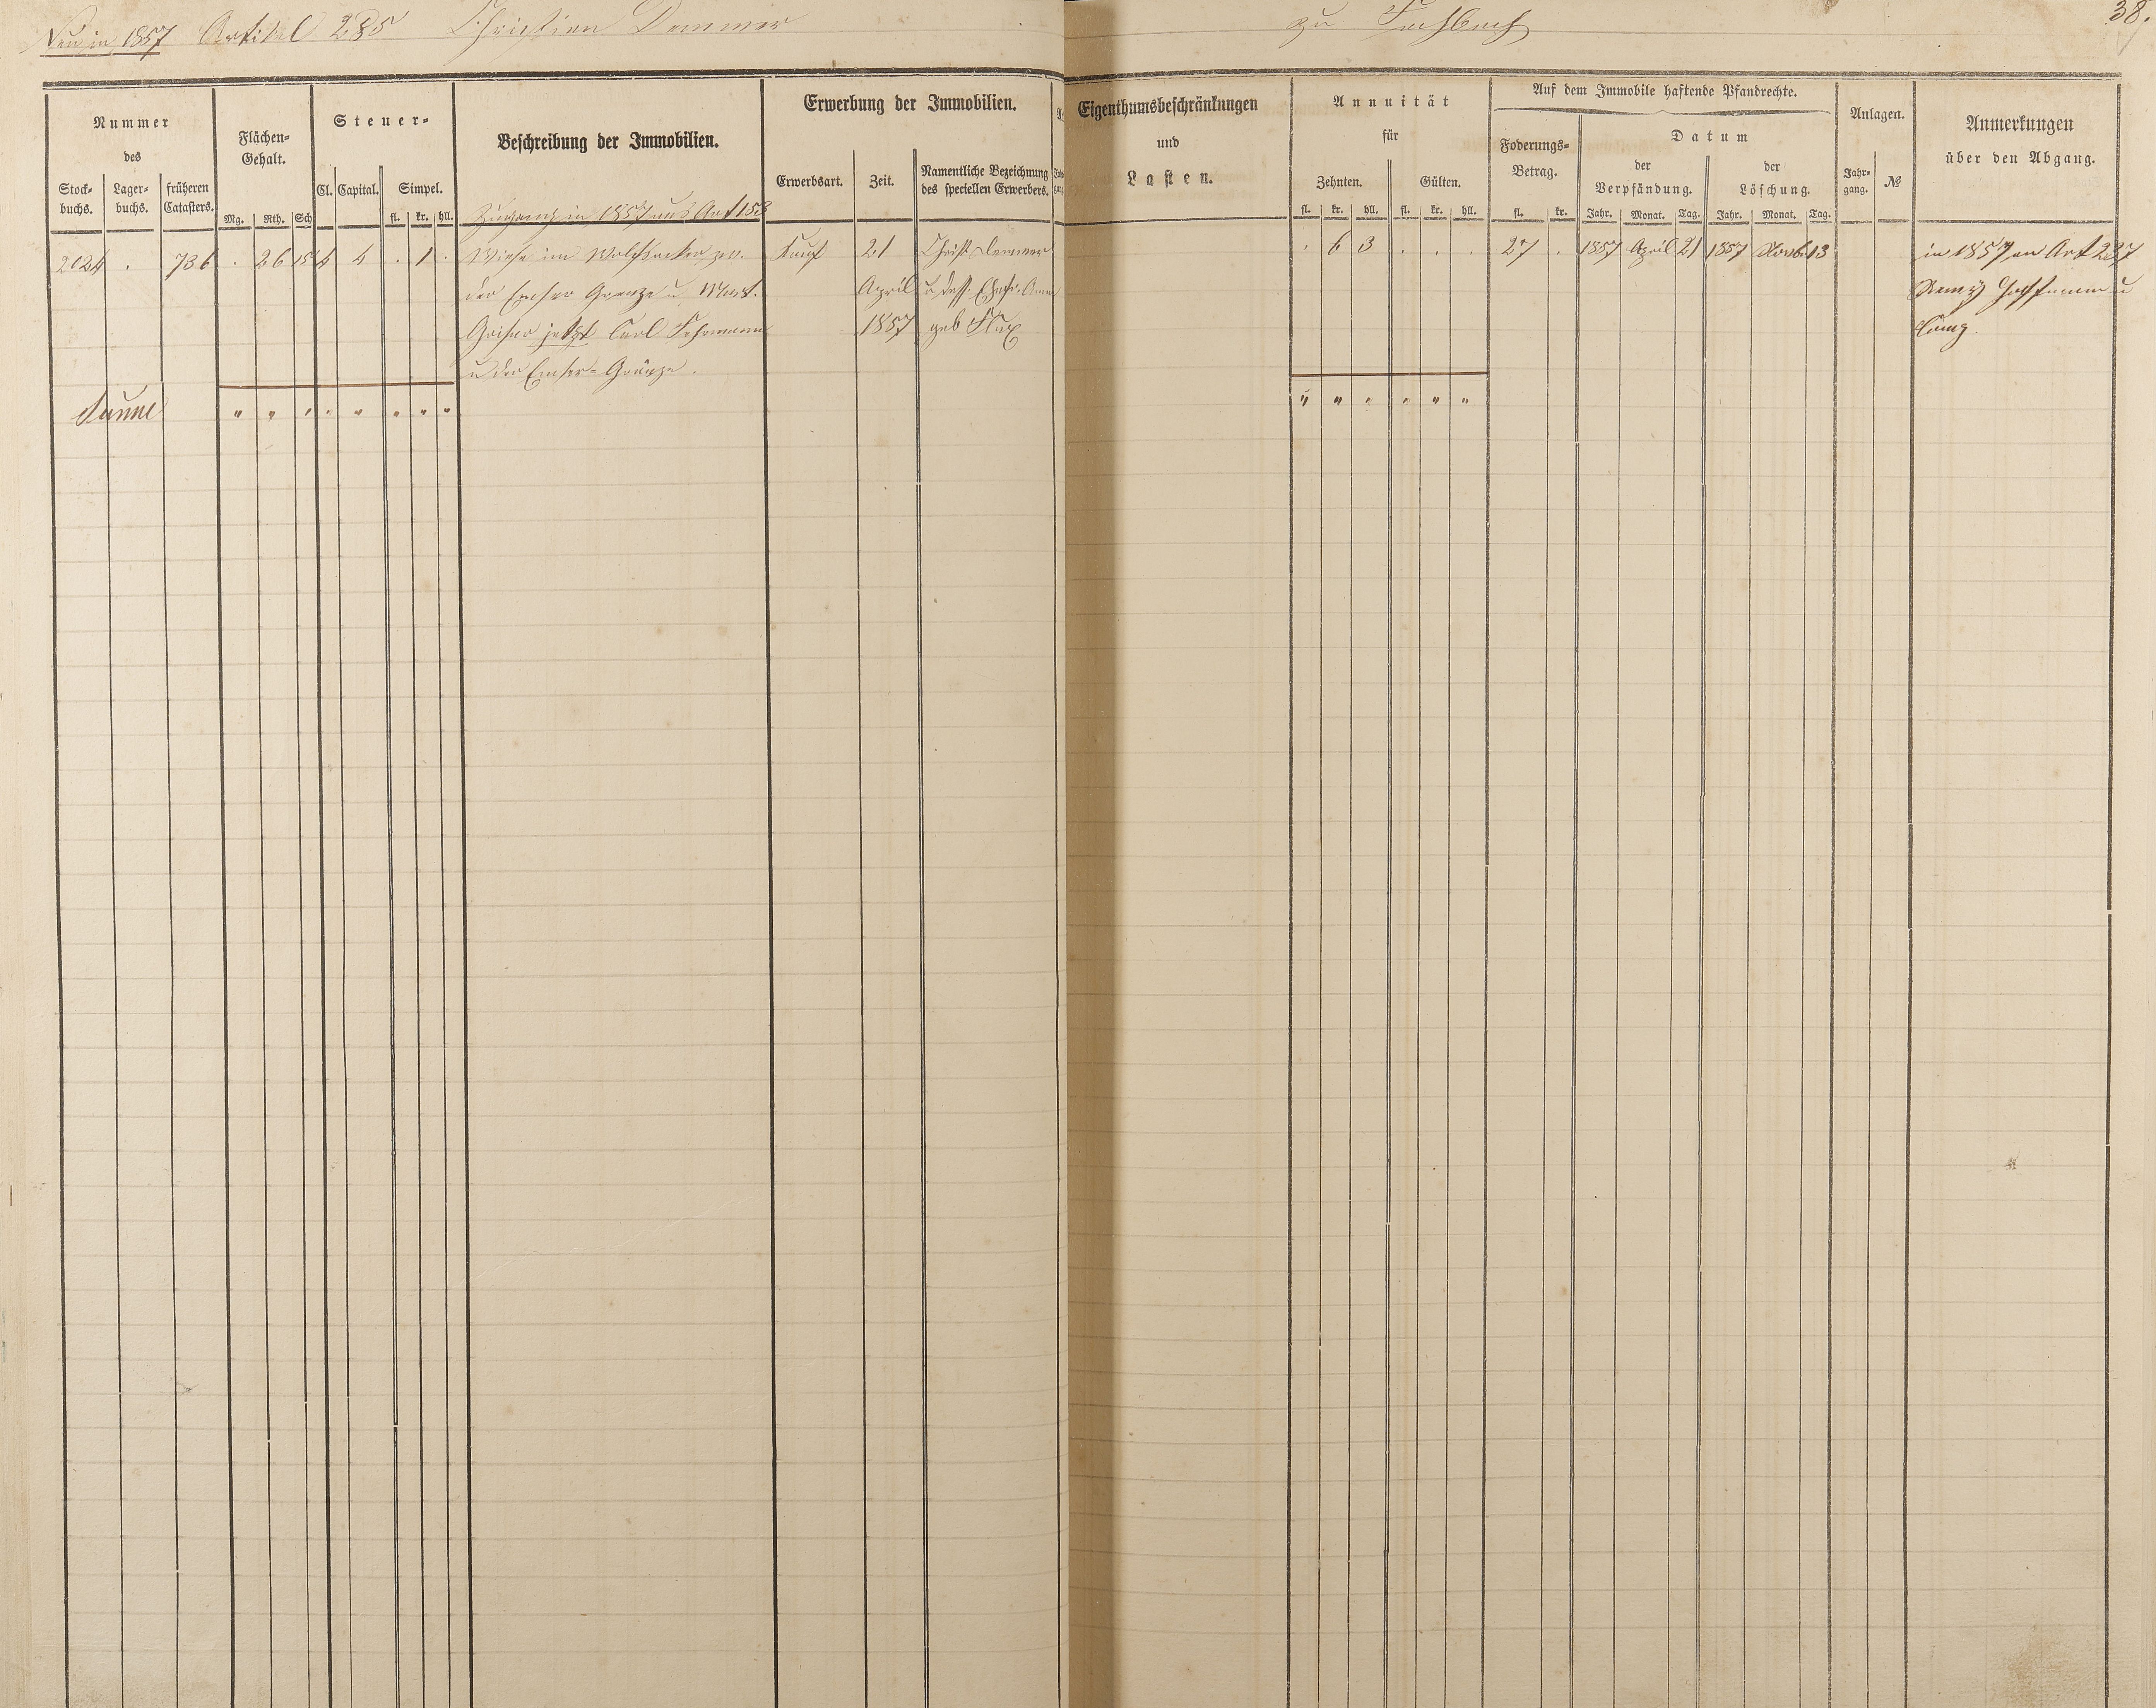 Neu in 1857 Artikel 285 Christian Demmer zu Fachbach 38.
Nummer
des
Stock-
buchs.
Lager-
buchs.
früheren
Catasters.
Flächen-
Gehalt.
Mg. Rth. Sch
Steuer-
Cl. Capital. Simpel.
fl. kr. hll.
Beschreibung der Immobilien.
Erwerbung der Immobilien.
Erwerbsart. Zeit.
Namentliche Bezeichnung
des speciellen Erwerbers.
Eigenthumsbeschränkungen
und
Lasten.
Annuität
für
Zehnten. Gülten.
fl. kr. hll. fl. kr. hll.
Auf dem Immobile haftende Pfandrechte.
Foderungs-
Betrag.
fl. kr.
Datum
der
Verpfändung.
der
Löschung.
Jahr. Monat. Tag. Jahr. Monat. Tag.
Anlagen.
Jahr-
gang. №
Anmerkungen
über den Abgang.
Zugang in 1857 aus Art 153
2124 . 736 . 26 15 4 4 . 1 . Wiese im zw. Kauf 21 Christ. Demmer . 6 3 . . . 27 . 1857 April 21 1857 Novb 13 in 1857 an Art 237
der Emser Grenze u. April u dess. Ehefr. Anna Hoffmann u
jetzt Carl 1857 geb
u der Emser-Gränze.
Summe " " " " " " " " " " " " " "